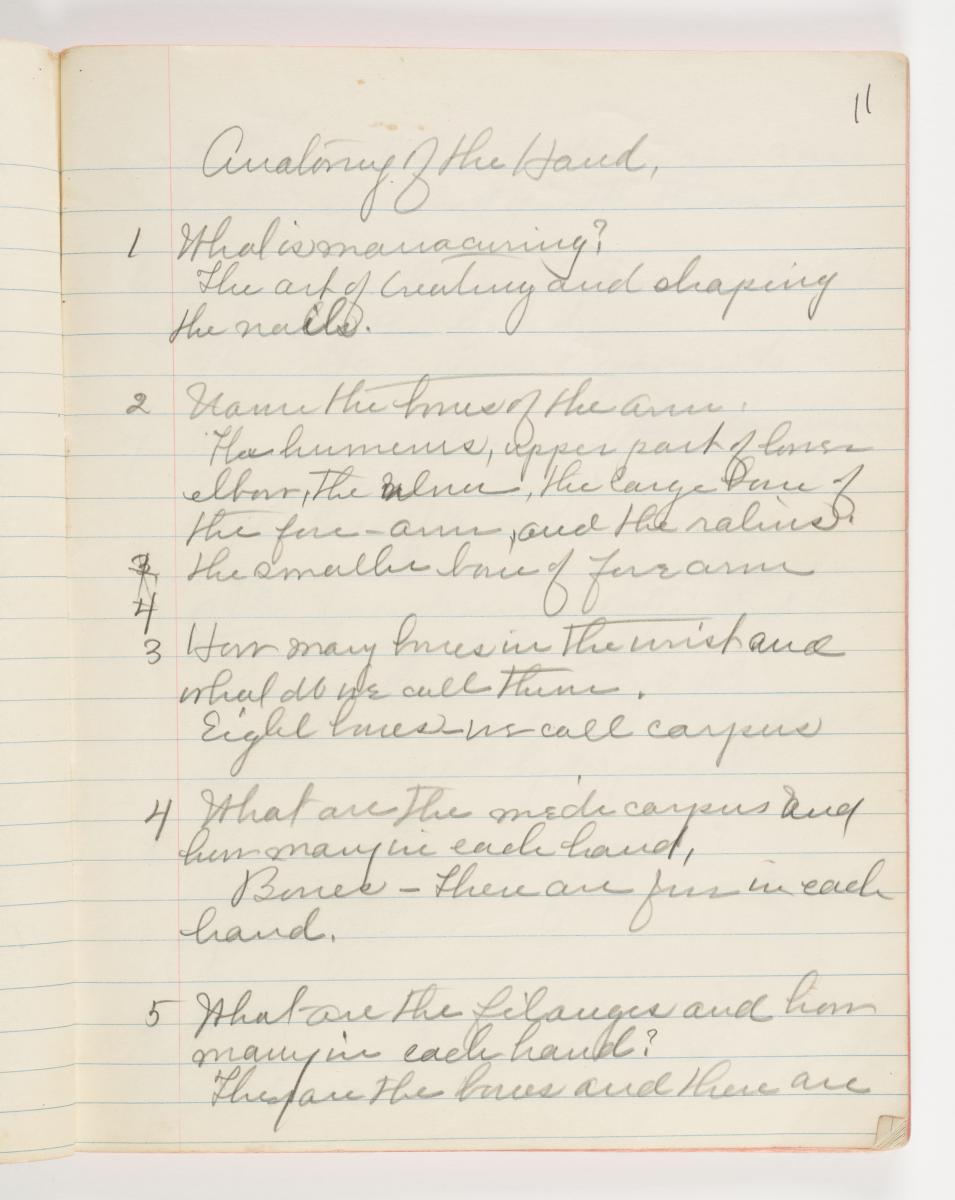 11
Anatomy of the Hand,
1 What is manacuring?
The art of treating and shaping
the nails.
2 Name the bones of the arm.
The humerus, upper part of bone
elbow, the ulner, the large bone of
the fore-arm, and the ralius.
3 the smaller bone of fore arm
4
3 How many bones in the wrist and
what do we call them.
Eight bones - we call carpus
4 What are the mede carpus and
how many in each hand,
Bones - There are five in each
hand.
5 What are the filanges and how
many in each hand?
They are the bones and there are